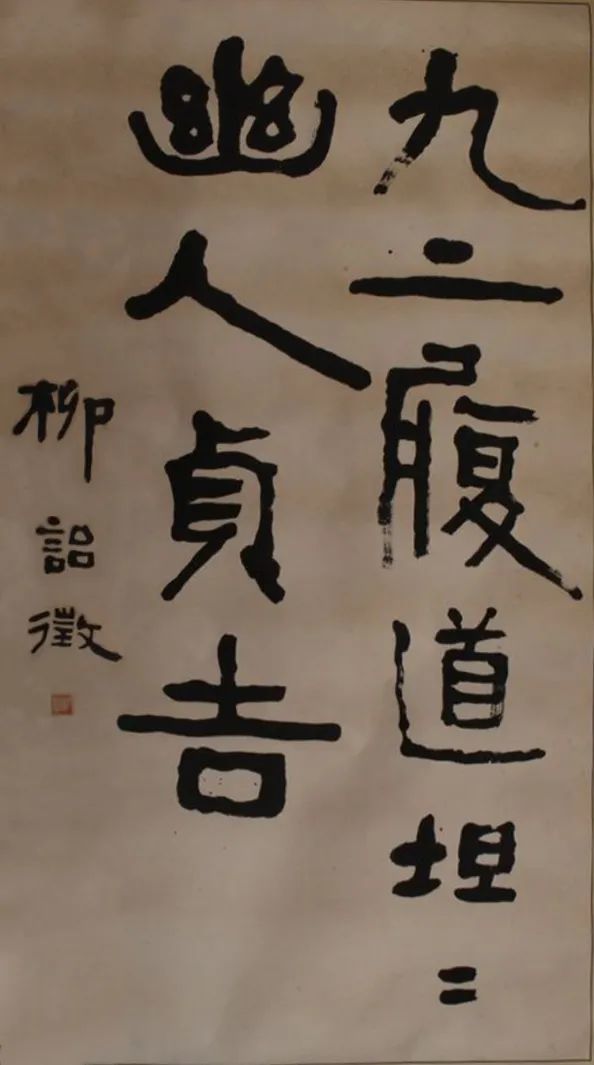 九二履道坦〻
幽人貞吉
柳詒徵